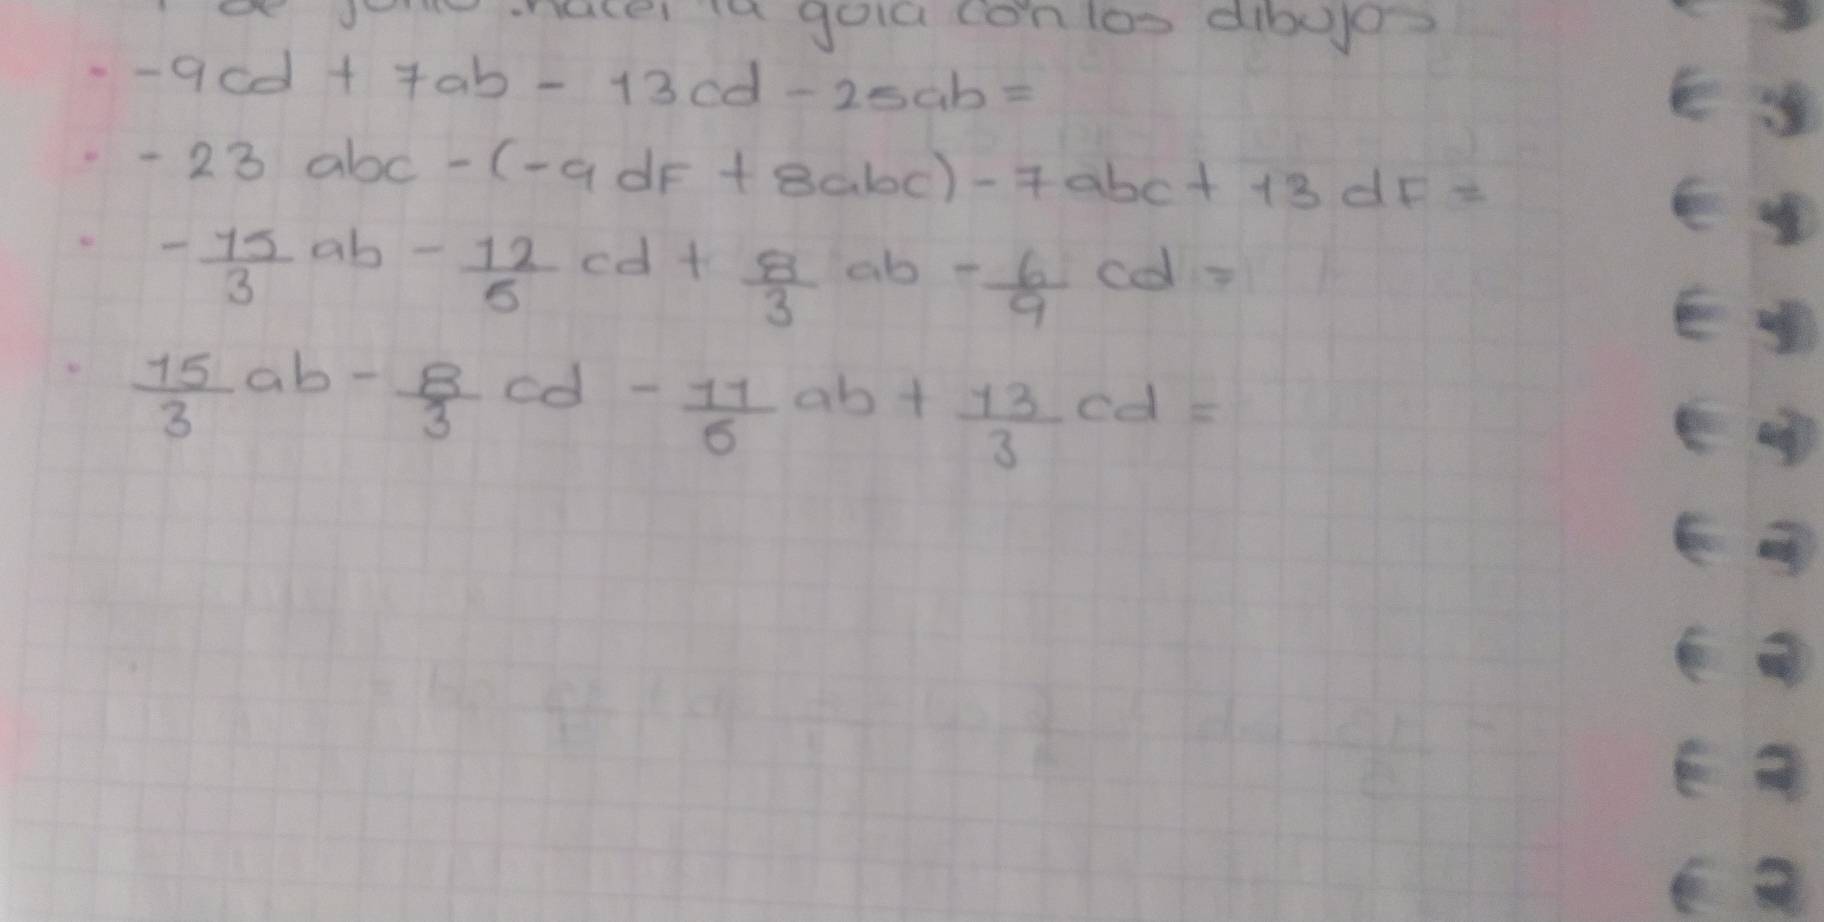 de junio. hacer la guia con los dibujos
- -9cd + 7ab - 13cd - 25ab =
- -23 abc - (-9 dF + 8abc) - 7abc + 13 dF =
- -15/3 ab - 12/5 cd + 8/3 ab - 6/9 cd =
- 15/3 ab - 8/3 cd - 11/5 ab + 13/3 cd =